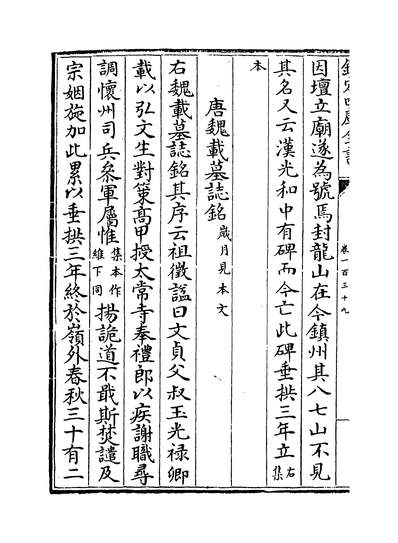 欽定四庫全書
卷一百三十九
因壇立廟遂為號焉封龍山在今鎮州其八七山不見
其名又云漢光和中有碑而今亡此碑垂拱三年立右集
本
唐魏載墓誌銘歲月見本文
右魏載墓誌銘其序云祖徵諡曰文貞父叔玉光禄卿
載以弘文生對策髙甲授太常寺奉禮郎以疾謝職尋
調懷州司兵叅軍屬惟集本作維下同揚詭道不戢斯焚譴及
宗姻施加此累以垂拱三年終於嶺外春秋三十有二